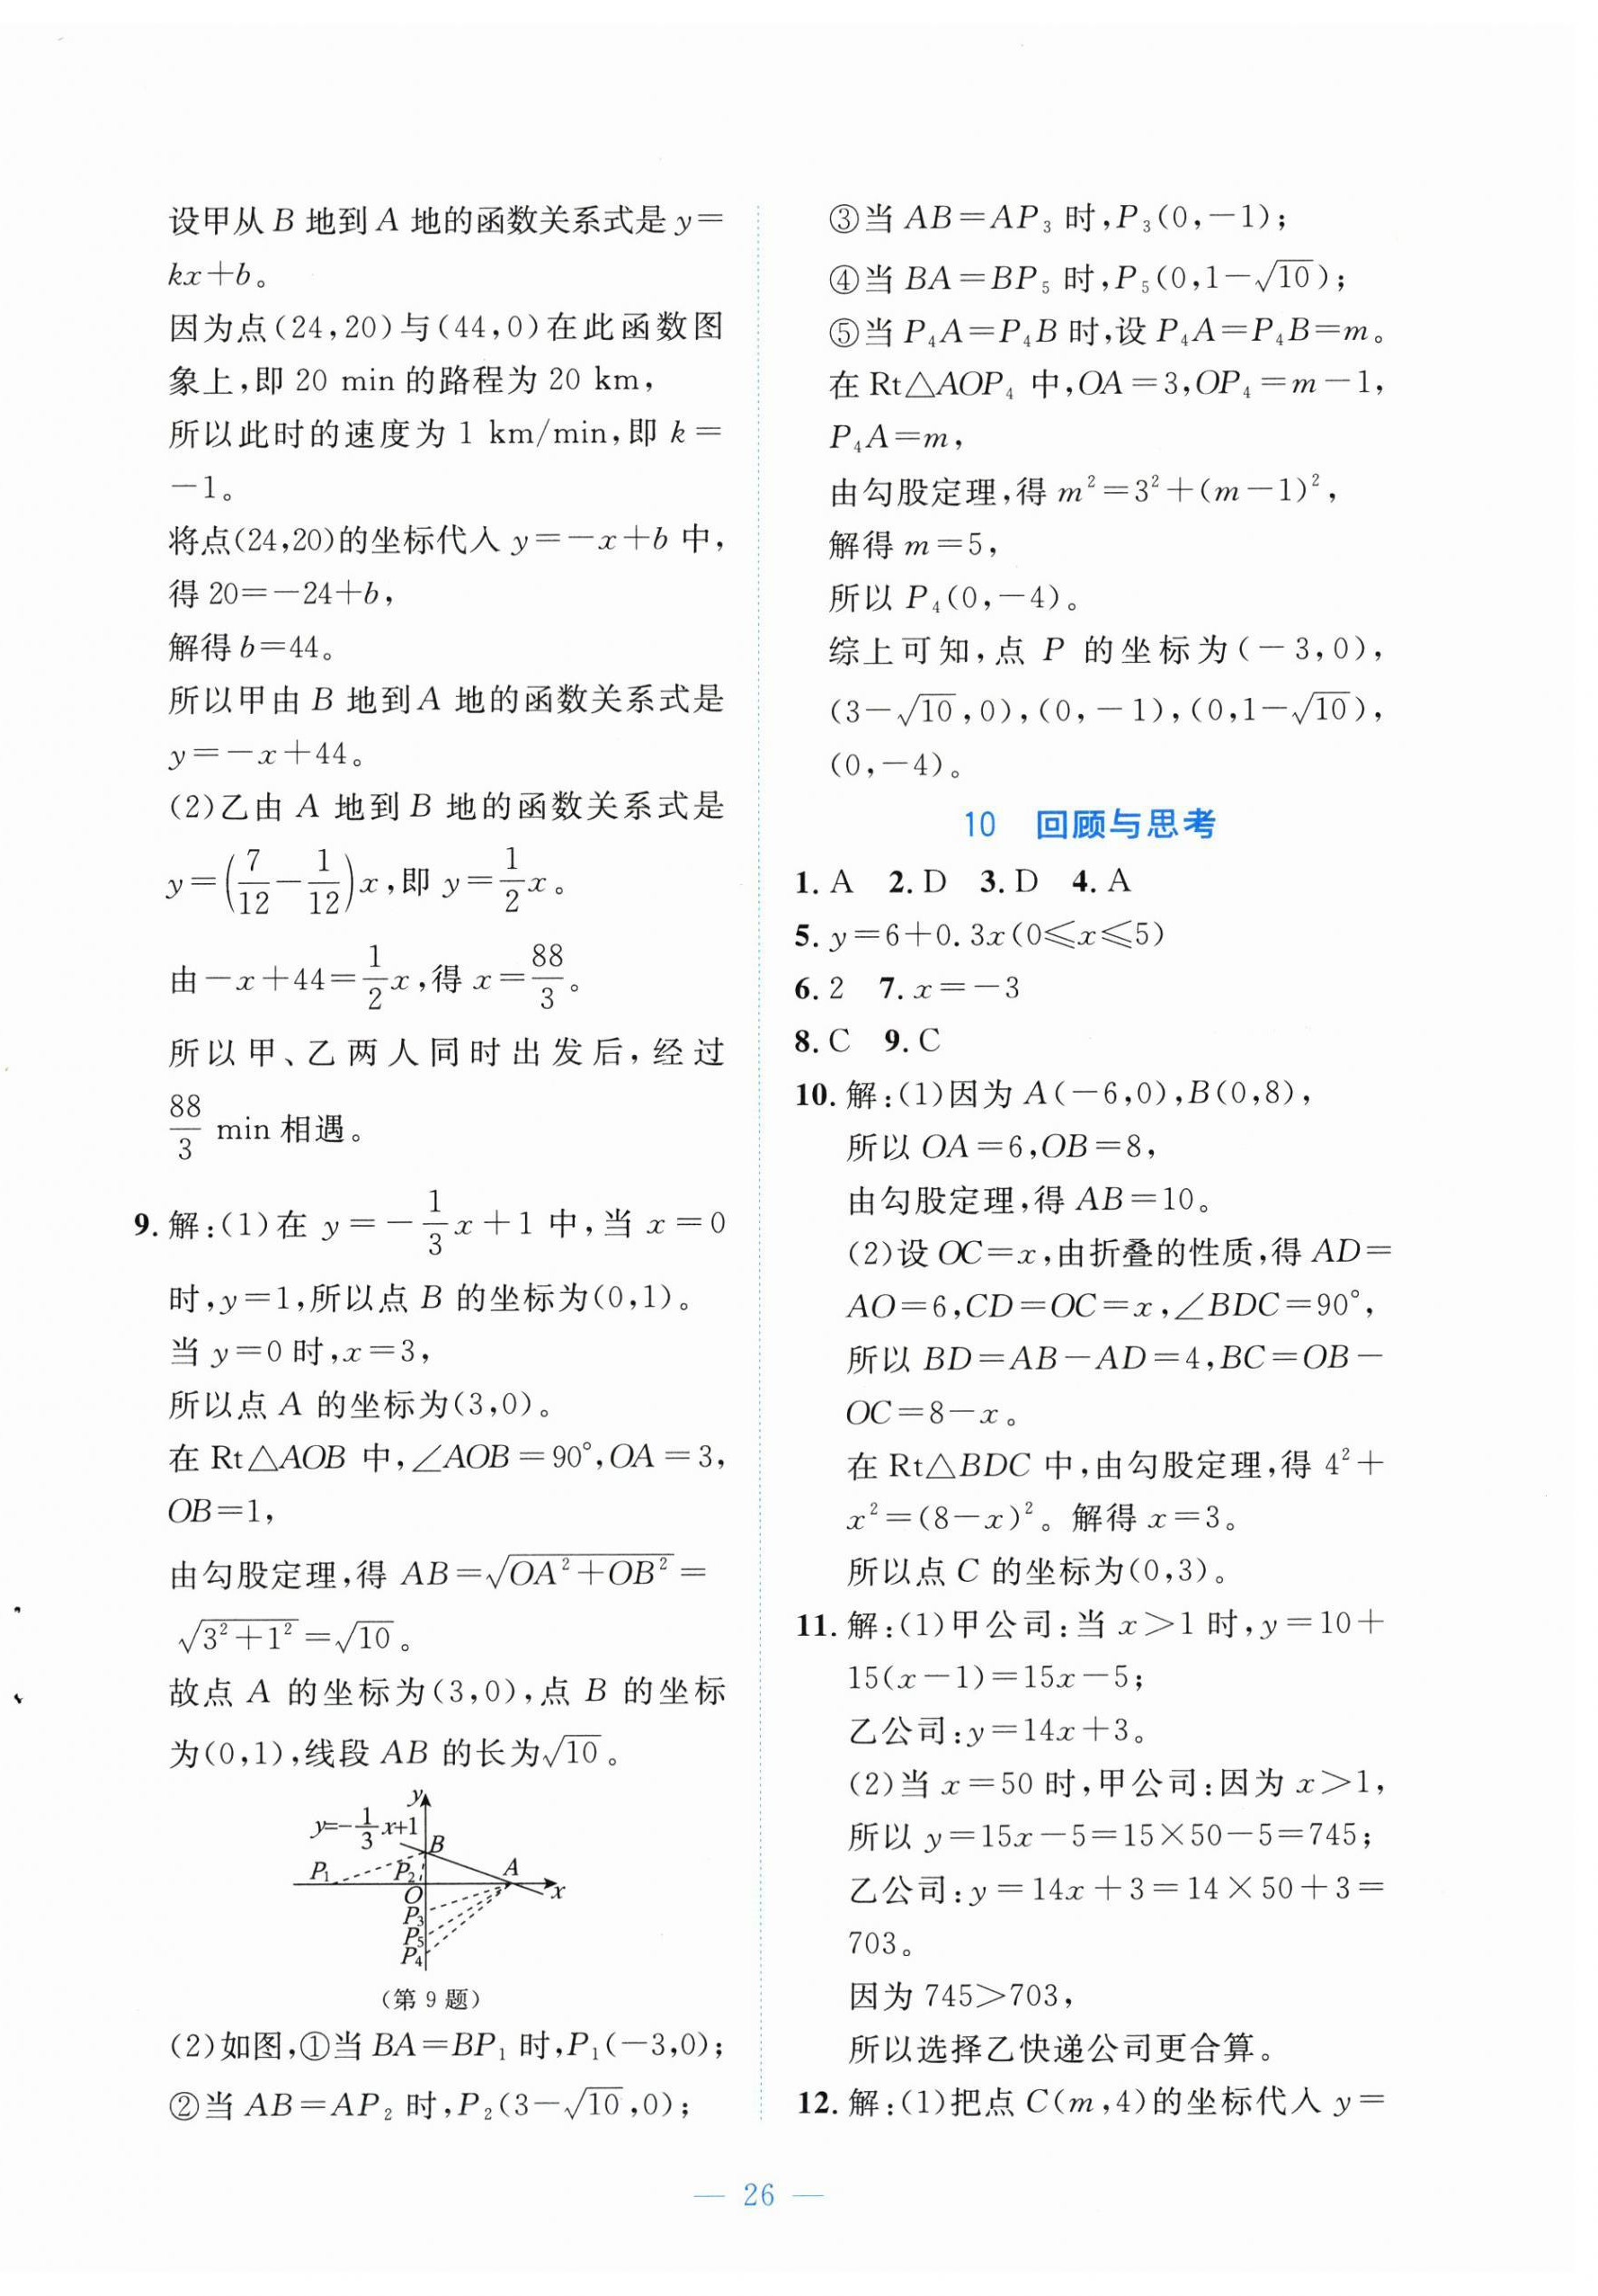 设甲从 B 地到 A 地的函数关系式是 y=
kx+b。
因为点(24,20)与(44,0)在此函数图
象上,即 20 min 的路程为 20 km,
所以此时的速度为 1 km/min,即 k=
-1。
将点(24,20)的坐标代入 y=-x+b 中,
得 20=-24+b,
解得 b=44。
所以甲由 B 地到A 地的函数关系式是
y=-x+44。
(2)乙由 A 地到 B 地的函数关系式是
y=(7/12-1/12)x,即 y=1/2x。
由-x+44=1/2x,得 x=88/3。
所以甲、乙两人同时出发后,经过
88/3 min 相遇。
9. 解:(1)在 y=-1/3x+1 中,当 x=0
时,y=1,所以点 B 的坐标为(0,1)。
当 y=0 时,x=3,
所以点 A 的坐标为(3,0)。
在 Rt△AOB 中,∠AOB=90°,OA=3,
OB=1,
由勾股定理,得 AB=√(OA²+OB²)=
√(3²+1²)=√10。
故点 A 的坐标为(3,0),点 B 的坐标
为(0,1),线段 AB 的长为√10。
y
y=-1/3x+1
B
P₁
P₂
A
O
x
P₃
P₅
P₄
(第 9 题)
(2)如图,①当 BA=BP₁ 时,P₁(-3,0);
②当 AB=AP₂ 时,P₂(3-√10,0);
③当 AB=AP₃ 时,P₃(0,-1);
④当 BA=BP₅ 时,P₅(0,1-√10);
⑤当 P₄A=P₄B 时,设 P₄A=P₄B=m。
在 Rt△AOP₄ 中,OA=3,OP₄=m-1,
P₄A=m,
由勾股定理,得 m²=3²+(m-1)²,
解得 m=5,
所以 P₄(0,-4)。
综上可知,点 P 的坐标为(-3,0),
(3-√10,0),(0,-1),(0,1-√10),
(0,-4)。
10 回顾与思考
1. A 2. D 3. D 4. A
5. y=6+0.3x(0≤x≤5)
6. 2 7. x=-3
8. C 9. C
10. 解:(1)因为 A(-6,0),B(0,8),
所以 OA=6,OB=8,
由勾股定理,得 AB=10。
(2)设 OC=x,由折叠的性质,得 AD=
AO=6,CD=OC=x,∠BDC=90°,
所以 BD=AB-AD=4,BC=OB-
OC=8-x。
在 Rt△BDC 中,由勾股定理,得 4²+
x²=(8-x)²。解得 x=3。
所以点 C 的坐标为(0,3)。
11. 解:(1)甲公司:当 x>1 时,y=10+
15(x-1)=15x-5;
乙公司:y=14x+3。
(2)当 x=50 时,甲公司:因为 x>1,
所以 y=15x-5=15×50-5=745;
乙公司:y=14x+3=14×50+3=
703。
因为 745>703,
所以选择乙快递公司更合算。
12. 解:(1)把点 C(m,4)的坐标代入 y=
— 26 —